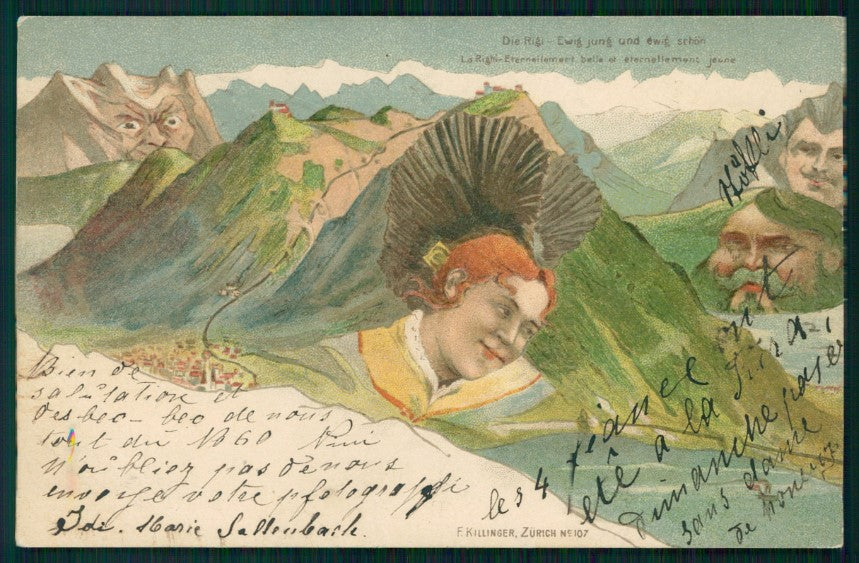 Die Rigi – Ewig jung und ewig schön
La Righi–Eternellement belle et eternellement jeune
Bien de
salutation et
des bec-bec de nous
tout du 1860
n'oubliez pas de nous
envoyer votre photographie
Marie
F. KILLINGER, ZÜRICH No 107
les 4 fiancé ont
été a la
Dimanche passé
sans dame
de